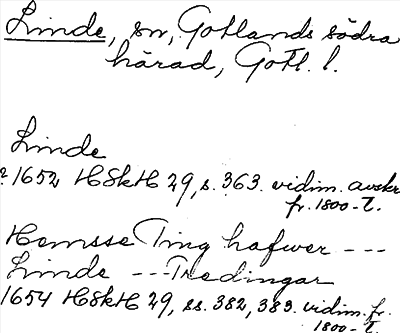 Linde, sn, Gotlands södra
härad, Gotl. l.
Linde
? 1652 HSkH 29, s. 363. vidim. avskr.
fr. 1800-t.
Hemsse Ting hafwer ---
Linde --- Tredingar
1654 HSkH 29, ss. 382, 383. vidim. fr.
1800-t.